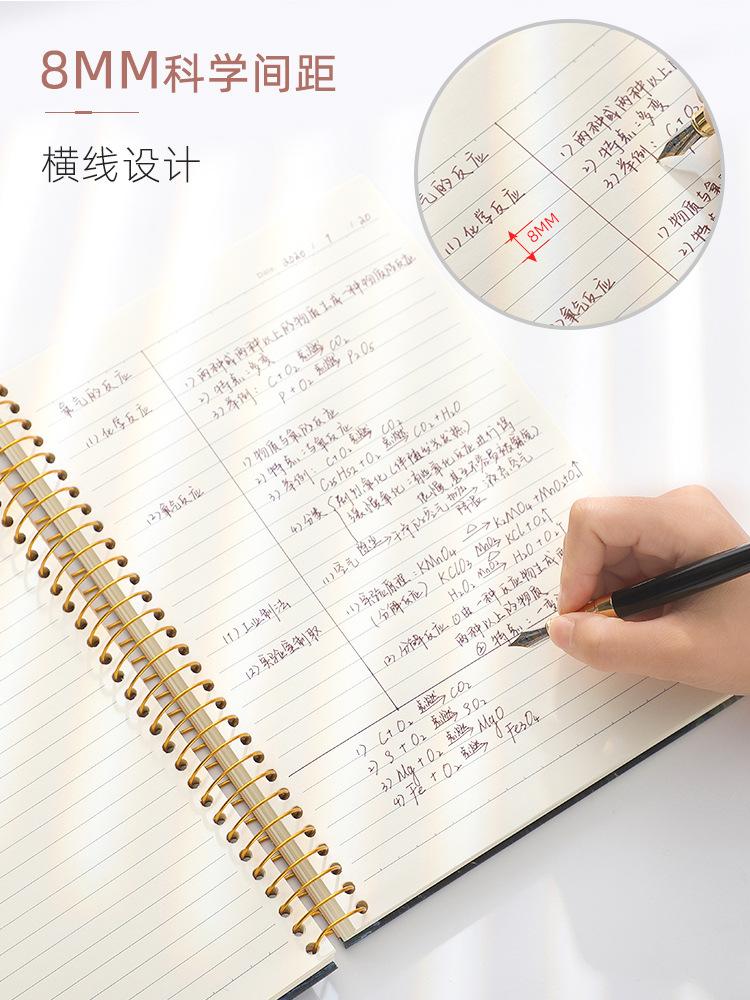 8MM科学间距
横线设计
氧气的反应
(1) 化学反应
1) 两种或两种以上
2) 特点:多变
3) 举例: C+O₂
1) 物质与氧
2) 特点
8MM
氧气反应
Date 2020 / 9 / 20
氧气的反应
1) 两种或两种以上的物质生成一种物质的反应
2) 特点:多变
3) 举例: C+O₂ 点燃→ CO₂
P+O₂ 点燃→ P₂O₅
(1) 化学反应
1) 物质与氧的反应
2) 特点:与氧反应
3) 举例: C+O₂ 点燃→ CO₂
+O₂ 点燃→ CO₂+H₂O
4) 分类
(2) 氧气反应
(1) 工业制法
1) 空气
(2) 实验室制取
1) 实验原理: KMnO₄ △→ K₂MnO₄+MnO₂+O₂↑
(分解反应) KClO₃ MnO₂→ KCl+O₂↑
H₂O₂ MnO₂→ H₂O+O₂↑
(2) 分解反应 ①由一种反应物生成两
两种以上的物质
②特点:一变
1) C+O₂ 点燃→ CO₂
2) S+O₂ 点燃→ SO₂
3) Mg+O₂ 点燃→ MgO
4) Fe+O₂ 点燃→ Fe₃O₄